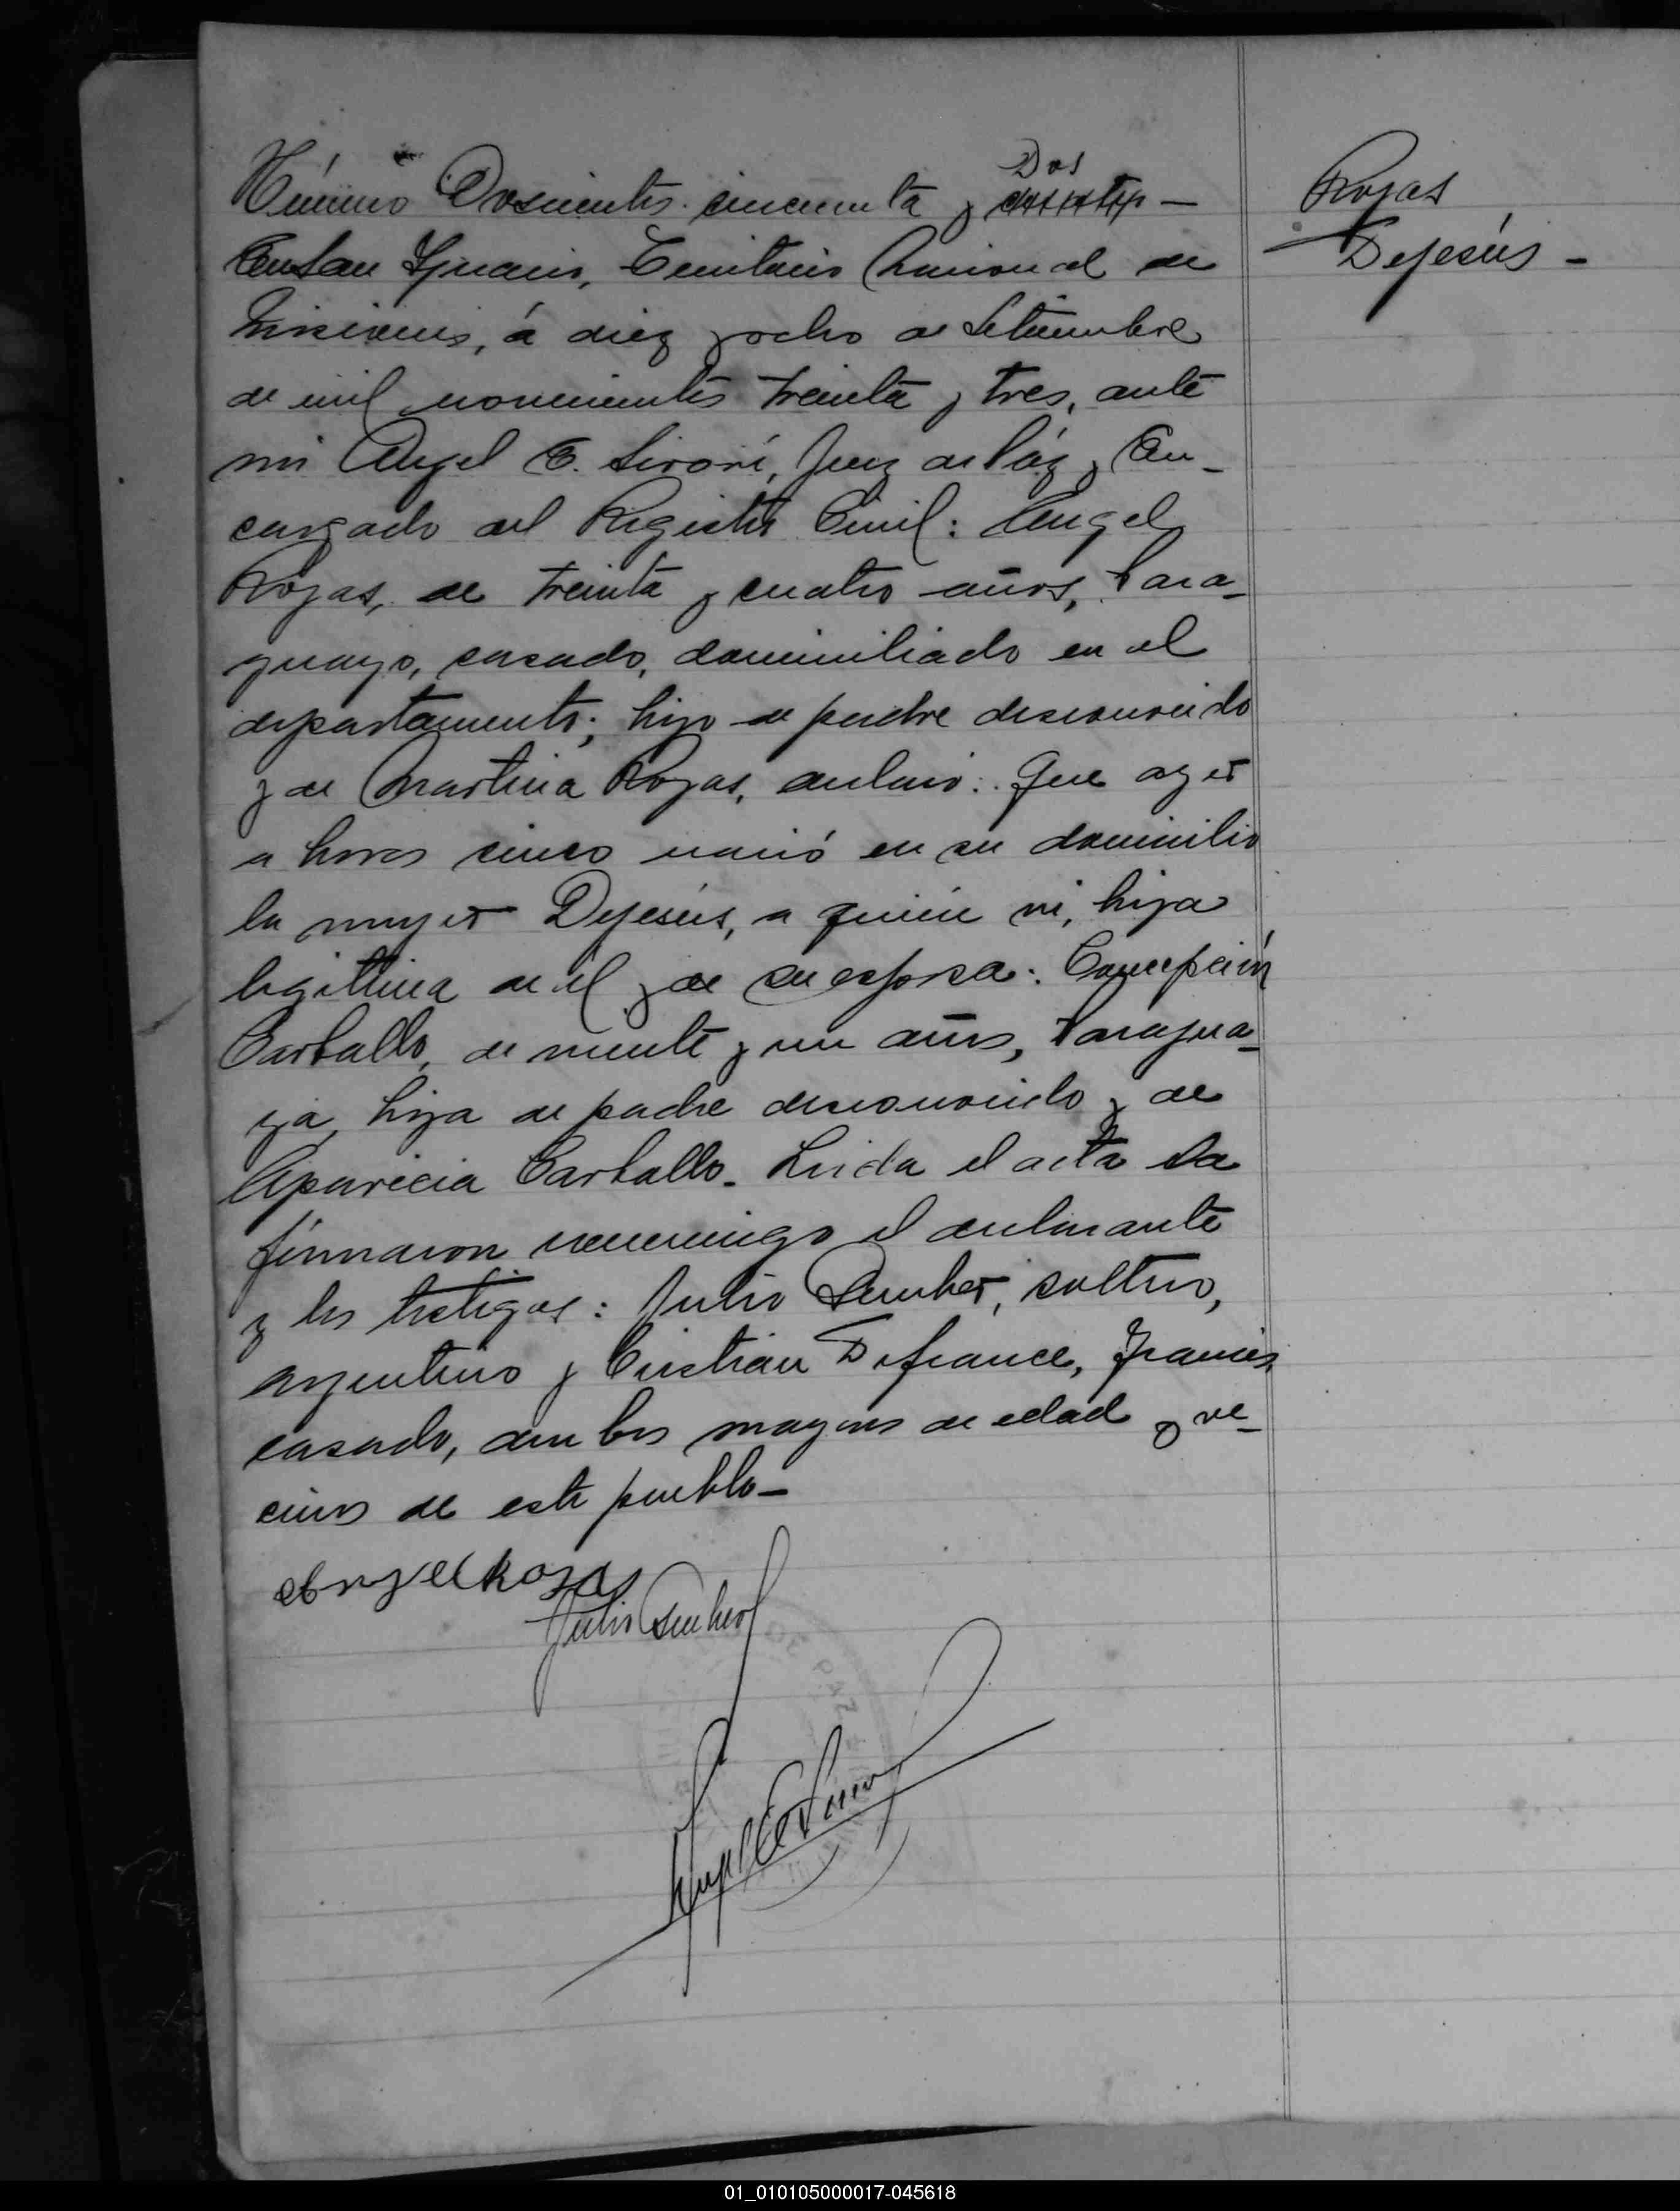 Número Doscientos cincuenta y Dos —
En San Ignacio, Territorio Nacional de
Misiones, á diez y ocho de Setiembre
de mil novecientos treinta y tres, ante
mi Angel E. Sirori, Juez de Páz y En-
cargado del Registro Civil: Angel
Rojas, de treinta y cuatro años, Para-
guayo, casado, domiciliado en el
departamento; hijo de padre desconocido
y de Martina Rojas, declaró: Que ayer
a horas cinco nació en su domicilio
la mujer Dejesús, a quién vi, hija
legittima de él y de su esposa: Concepción
Carballo, de veinte y un años, Paragua-
ya, hija de padre desconocido y de
Aparicia Carballo. Leida el acta la
firmaron conmigo el declarante
y los testigos: Julio, soltero,
argentino y Cristian Defrance, Francés,
casado, ambos mayores de edad y ve-
cinos de este pueblo—
Angel Rojas
Julio
Rojas
Dejesús -
01_010105000017-045618